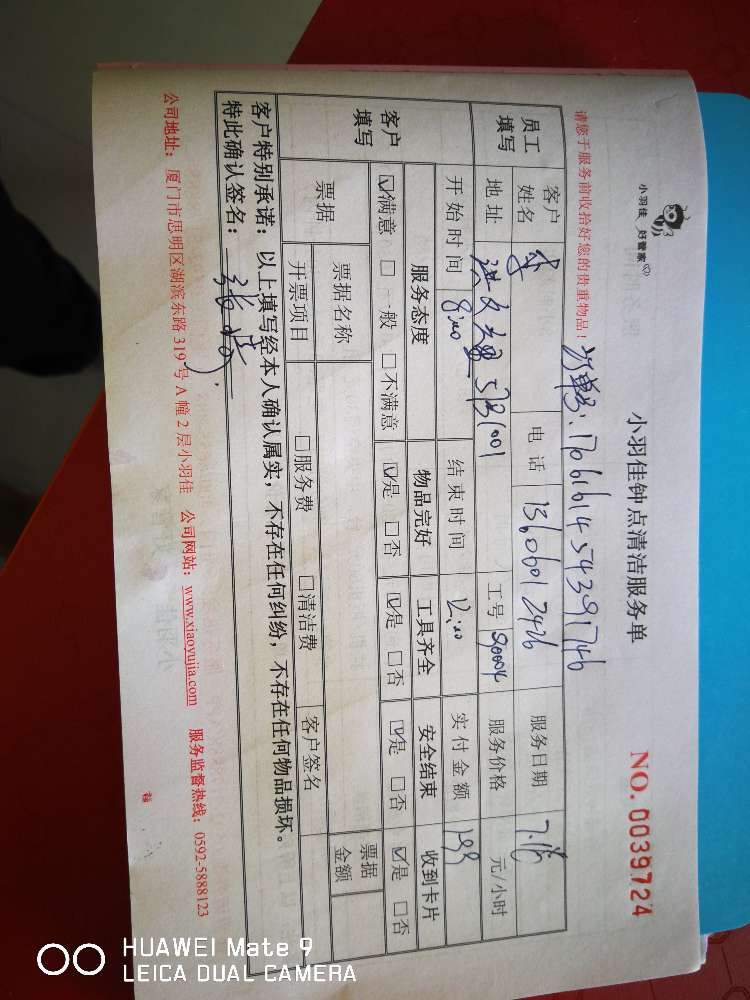 小羽佳 好管家
小羽佳钟点清洁服务单
NO. 0039724
请您于服务前收拾好您的贵重物品！
订单号：1706161454391746
员工填写 客户姓名 李 电话 13606012426 服务日期 7.18
地址 洪文 5B1001 工号 90004 服务价格 元/小时
开始时间 8:00 结束时间 12:00 实付金额
客户填写 服务态度 物品完好 工具齐全 安全结束 收到卡片
☑满意 □一般 □不满意 ☑是 □否 ☑是 □否 ☑是 □否 ☑是 □否
票据 票据名称 票据金额
开票项目 □服务费 □清洁费 客户签名
客户特别承诺：以上填写经本人确认属实，不存在任何纠纷，不存在任何物品损坏。
特此确认签名：
公司地址：厦门市思明区湖滨东路 319 号 A 幢 2 层小羽佳 公司网站：www.xiaoyujia.com 服务监督热线：0592-5888123
HUAWEI Mate 9
LEICA DUAL CAMERA